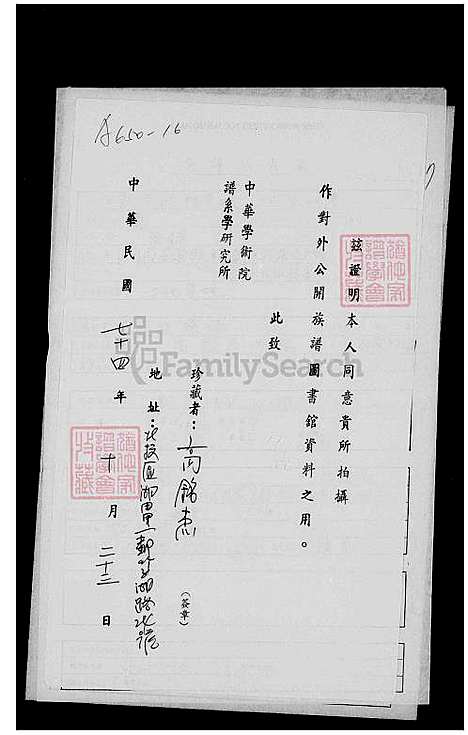 A650-16
茲證明本人同意貴所拍攝
作對外公開族譜圖書館資料之用。
此致
中華學術院
譜系學研究所
珍藏者：高銘杰 （簽章）
地址：北投區湖田里一鄰 湖路 號
中華民國七十四年十月二十二日
FamilySearch